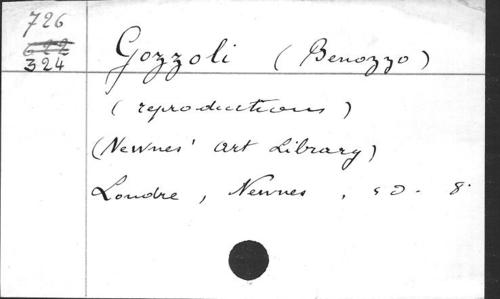 726
622
324
Gozzoli (Benozzo)
(reproductions)
(Newnes' Art Library)
Londre, Newnes, s D. 8°